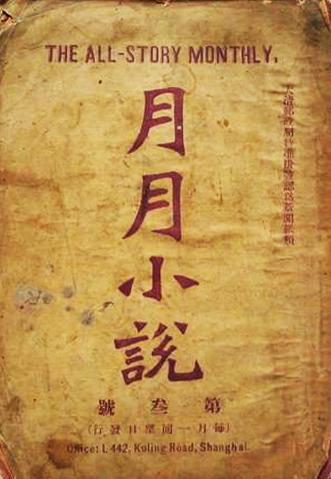 THE ALL-STORY MONTHLY.
大清郵政局特准掛號認爲新聞紙類
月月小說
號叁第
(行發日望月一每)
Office: L 442, Kuling Road, Shanghai.